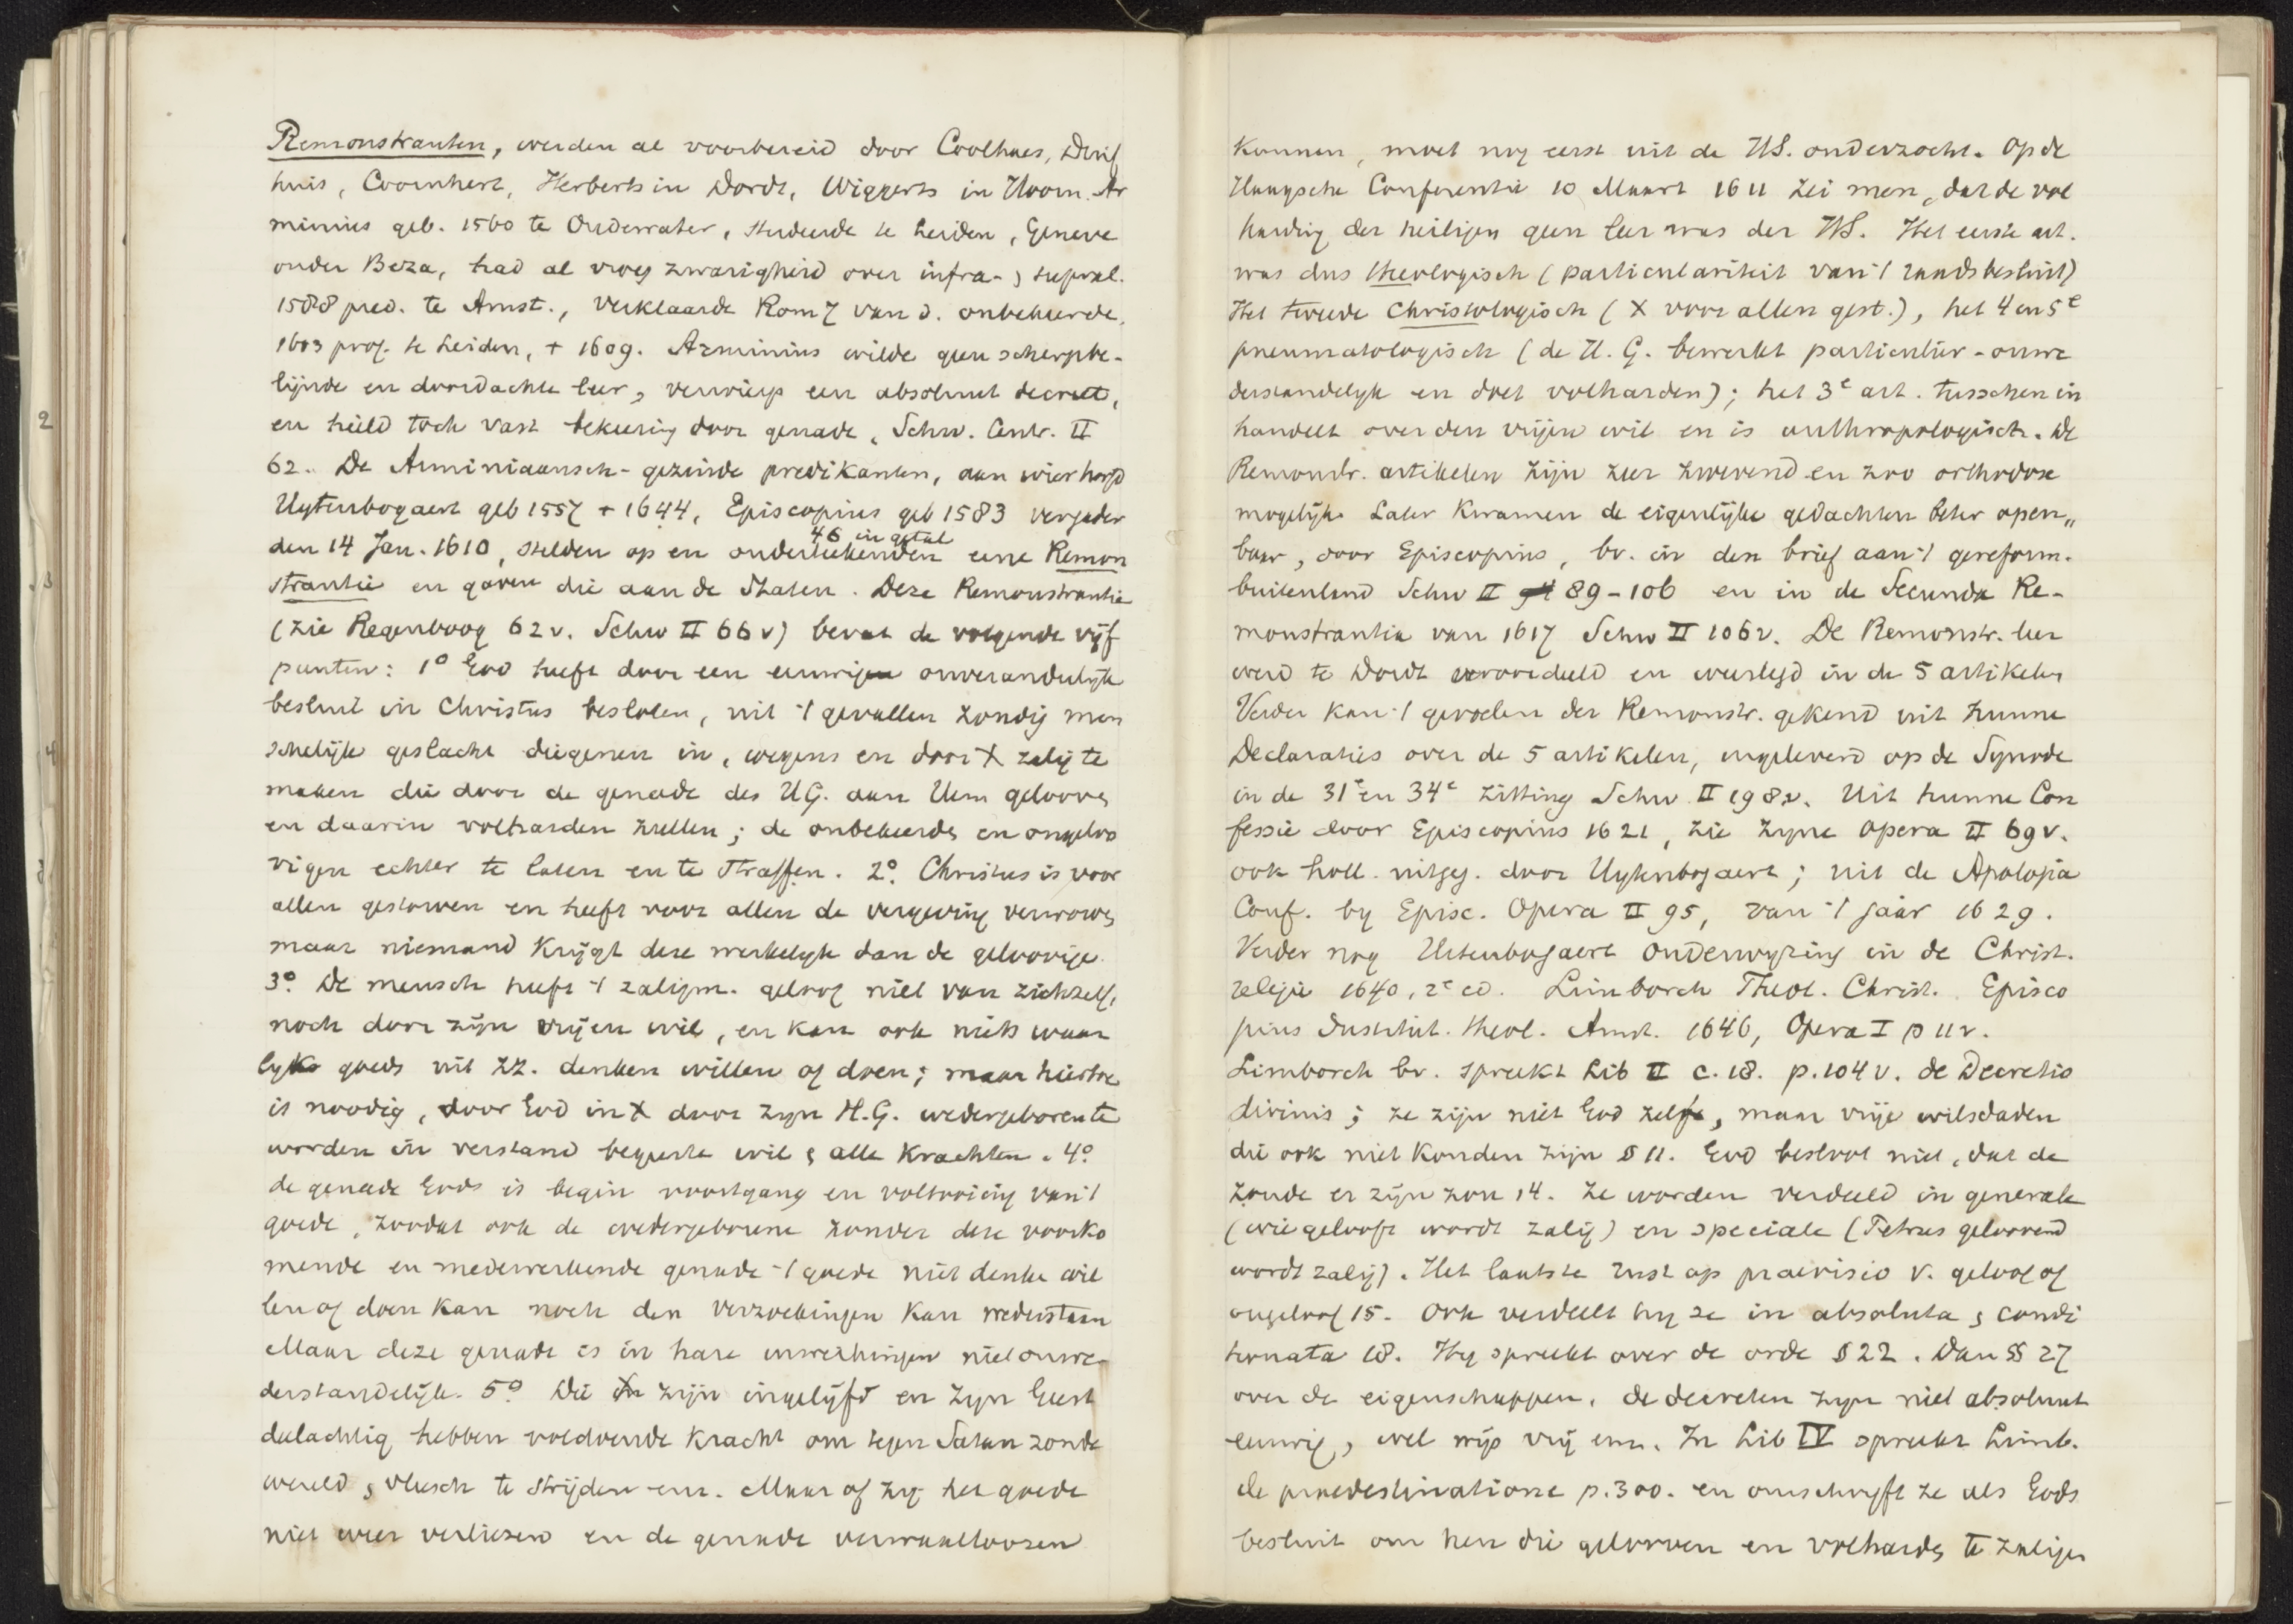 Remonstranten, werden al voorbereid door Coolhaes, Duif
huis, Coornhert, Herberts in Dordt, Wiggerts in Hoorn. Ar
minius geb. 1560 te Oudewater, studeerde te Leiden, Geneve
onder Beza, had al vroeg zwarigheid over infra-, supral.
1588 pred. te Amst., verklaarde Rom 7 van d. onbekeerde,
1603 prof. te Leiden, + 1609. Arminius wilde geen scherpbe-
lijnde en doordachte leer, verwierp een absoluut decreet,
en hield toch vast bekeering door genade, Schw. Centr. II
62. De Arminiaansch-gezinde predikanten, aan wier hoofd
Uytenbogaert geb 1557 + 1644, Episcopius geb 1583 vergader
den 14 Jan. 1610, stelden op en onderteekenden eene Remon
46 in getal
strantie en gaven die aan de Staten. Deze Remonstrantie
(zie Regenboog 62v. Schw II 66v) bevat de volgende vijf
punten: 1° God heeft door een eeuwig onveranderlyk
besluit in Christus besloten, uit 't gevallen zondig men
schelijk geslacht diegenen in, wegens en door X zalig te
maken die door de genade des H.G. aan Hem gelooven
en daarin volharden zullen; de onbekeerde en ongeloo
vigen echter te laten en te straffen. 2°. Christus is voor
allen gestorven en heeft voor allen de vergeving verworven
maar niemand krijgt deze werkelyk dan de geloovige.
3°. De mensch heeft 't zaligm. geloof niet van zichzelf,
noch door zijn vrijen wil, en kan ook niets waar
lyks goeds uit zz. denken willen of doen; maar hiertoe
is noodig, door God in X door zyn H.G. wedergeboren te
worden in verstand begeerte wil & alle krachten. 4°.
de genade Gods is begin voortgang en voltooiing van 't
goede, zoodat ook de wedergeborene zonder deze voorko
mende en medewerkende genade 't goede niet denke wil
len of doen kan noch den verzoekingen kan wederstaan
Maar deze genade is in hare inwerkingen niet onwe-
derstandelijk. 5° Die in X zijn ingelijfd en zyn Geest
delachtig hebben voldoende kracht om tegen Satan zonde
wereld & vleesch te strijden enz. Maar of zy het goede
niet weer verliezen en de genade verwaarloozen
kunnen, moet nog eerst uit de HS. onderzocht. Op de
Haagsche Conferentie 10 Maart 1611 zei men, dat de vol
harding der heiligen geen leer was der HS. Het eerste art.
was dus theologisch (particulariteit van 't raadsbesluit)
Het tweede Christologisch (X voor allen gest.), het 4 en 5e
pneumatologisch (de H.G. bewerkt particulier-onwe
derstandelyk en doet volharden); het 3e art. tusschen in
handelt over den vrijen wil en is anthropologisch. De
Remonstr. artikelen zijn zeer zwevend en zoo orthodox
mogelijk. Later kwamen de eigenlijke gedachten beter open„
baar, door Episcopius, bv. in den brief aan 't gereform.
buitenland Schw II 89-106 en in de Secunda Re-
monstrantia van 1617 Schw II 106v. De Remonstr. leer
werd te Dordt veroordeeld en weerlegd in de 5 artikelen
Verder kan 't gevoelen der Remonstr. gekend uit hunne
Declaraties over de 5 artikelen, ingeleverd op de Synode
in de 31e en 34e zitting Schw II 198v. Uit hunne Con
fessie door Episcopius 1621, zie zyne Opera II 69v.
ook holl. uitgeg. door Uytenbogaert; uit de Apologia
Conf. by Episc. Opera II 95, van 't jaar 1629.
Verder nog Utenbogaert Onderwyzing in de Christ.
religie 1640, 2e ed. Limborch Theol. Christ. Episco
pius Institut. theol. Amst. 1646, Opera I p 11v.
Limborch bv. spreekt Lib II c. 18. p. 104v. de Decretis
divinis; ze zijn niet God zelf, maar vrije wilsdaden
die ook niet konden zijn § 11. God besloot niet, dat de
zonde er zijn zou 14. Ze worden verdeeld in generale
(wie gelooft wordt zalig) en speciale (Petrus geloovend
wordt zalig). Het laatste rust op praevisio v. geloof of
ongeloof 15. Ook verdeelt hy ze in absoluta & condi
tionata 18. Hy spreekt over de orde § 22. Dan §§ 27
over de eigenschappen. de decreten zyn niet absoluut
eeuwig, wel wijs vrij enz. In Lib IV spreekt Limb.
de praedestinatione p. 300. en omschryft ze als Gods
besluit om hen die gelooven en volharden te zaligen